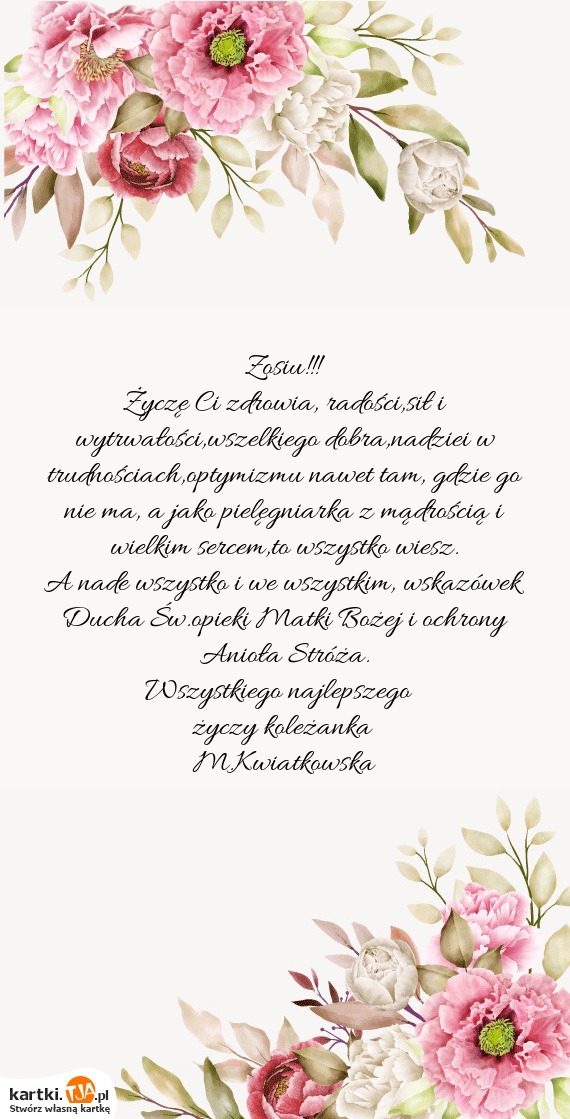 Zosiu!!!
Życzę Ci zdrowia, radości,sił i
wytrwałości,wszelkiego dobra,nadziei w
trudnościach,optymizmu nawet tam, gdzie go
nie ma, a jako pielęgniarka z mądrością i
wielkim sercem,to wszystko wiesz.
A nade wszystko i we wszystkim, wskazówek
Ducha Św.opieki Matki Bożej i ochrony
Anioła Stróża.
Wszystkiego najlepszego
życzy koleżanka
M.Kwiatkowska
kartki.TJA.pl
Stwórz własną kartkę